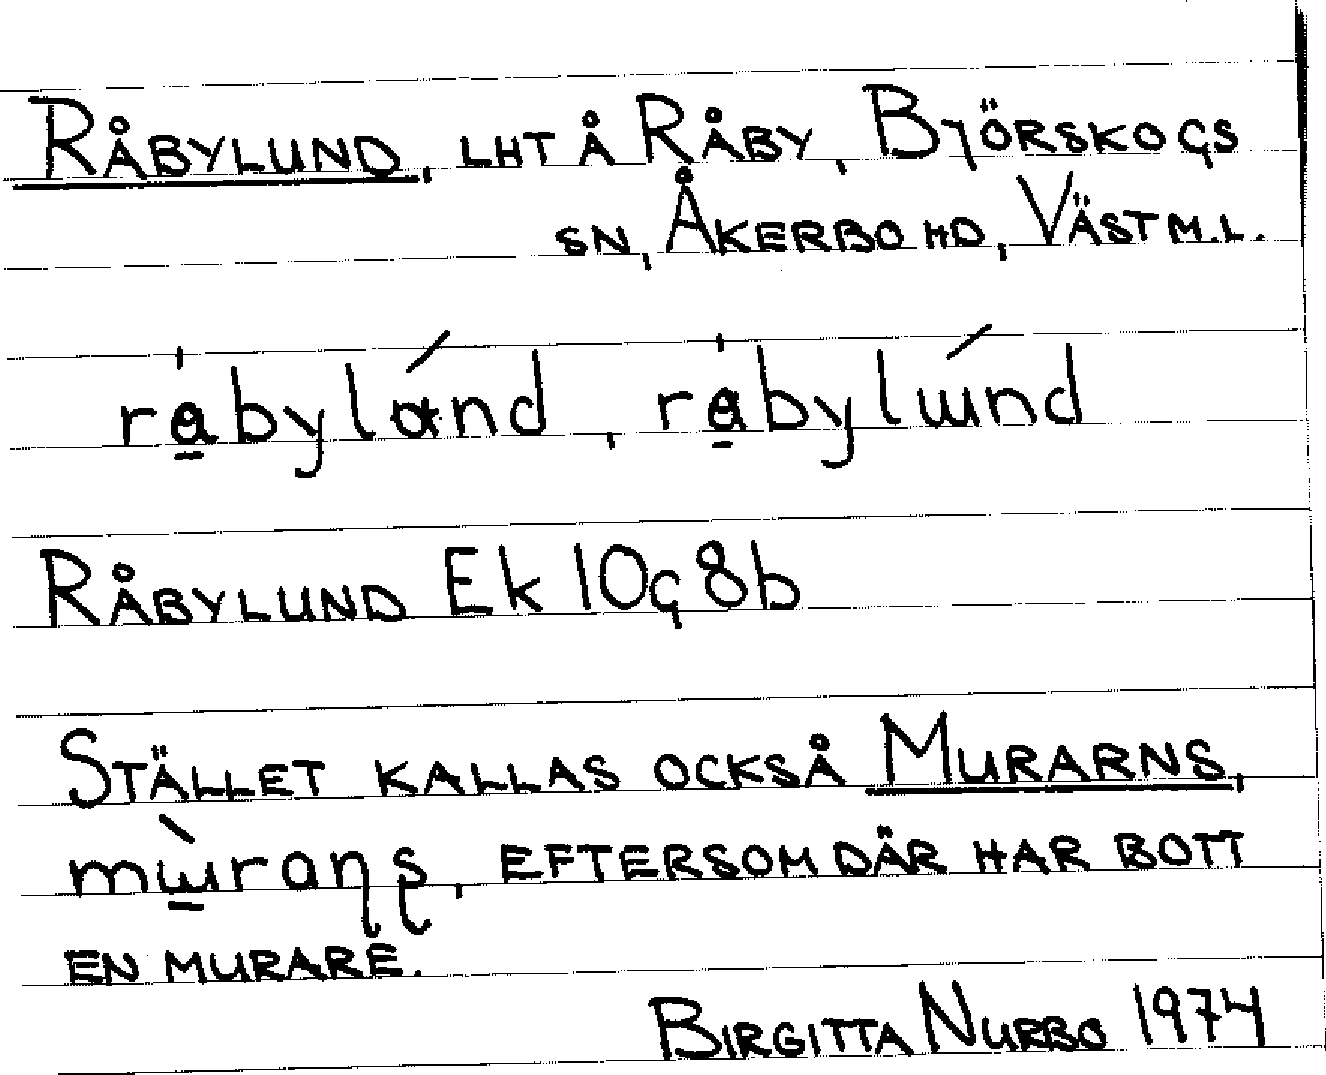 RÅBYLUND, LHT Å RÅBY, BJÖRSKOGS
SN, ÅKERBO HD, VÄSTM.L.
RÅBYLUND Ek 10g8b
STÄLLET KALLAS OCKSÅ MURARNS,
EFTERSOM DÄR HAR BOTT
EN MURARE.
BIRGITTA NURBO 1974